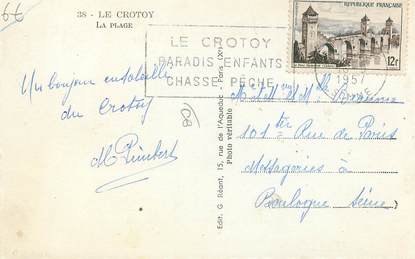 6€
38 - LE CROTOY
LA PLAGE
LE CROTOY
PARADIS ENFANTS
CHASSE PÊCHE
REPUBLIQUE FRANÇAISE
12F
1957
SOMME
Un bonjour ensoleillé
du Crotoy
M Rimbert
108
Edit. G. Réant, 15, rue de l'Aqueduc - Paris (Xe)
Photo véritable
101 ter Rue de Paris
Messageries à
Boulogne Seine)